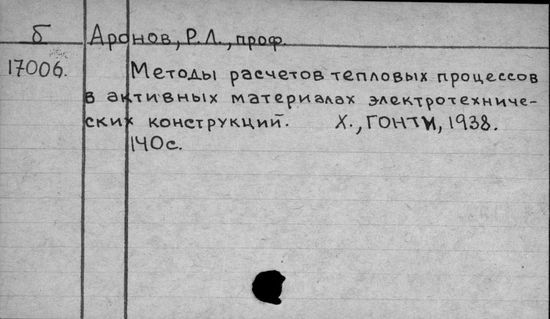 Б Аронов, Р.Л., проф.
17006. Методы расчетов тепловых процессов
в активных материалах электротехниче-
ских конструкций. Х., ГОНТИ, 1938.
140с.